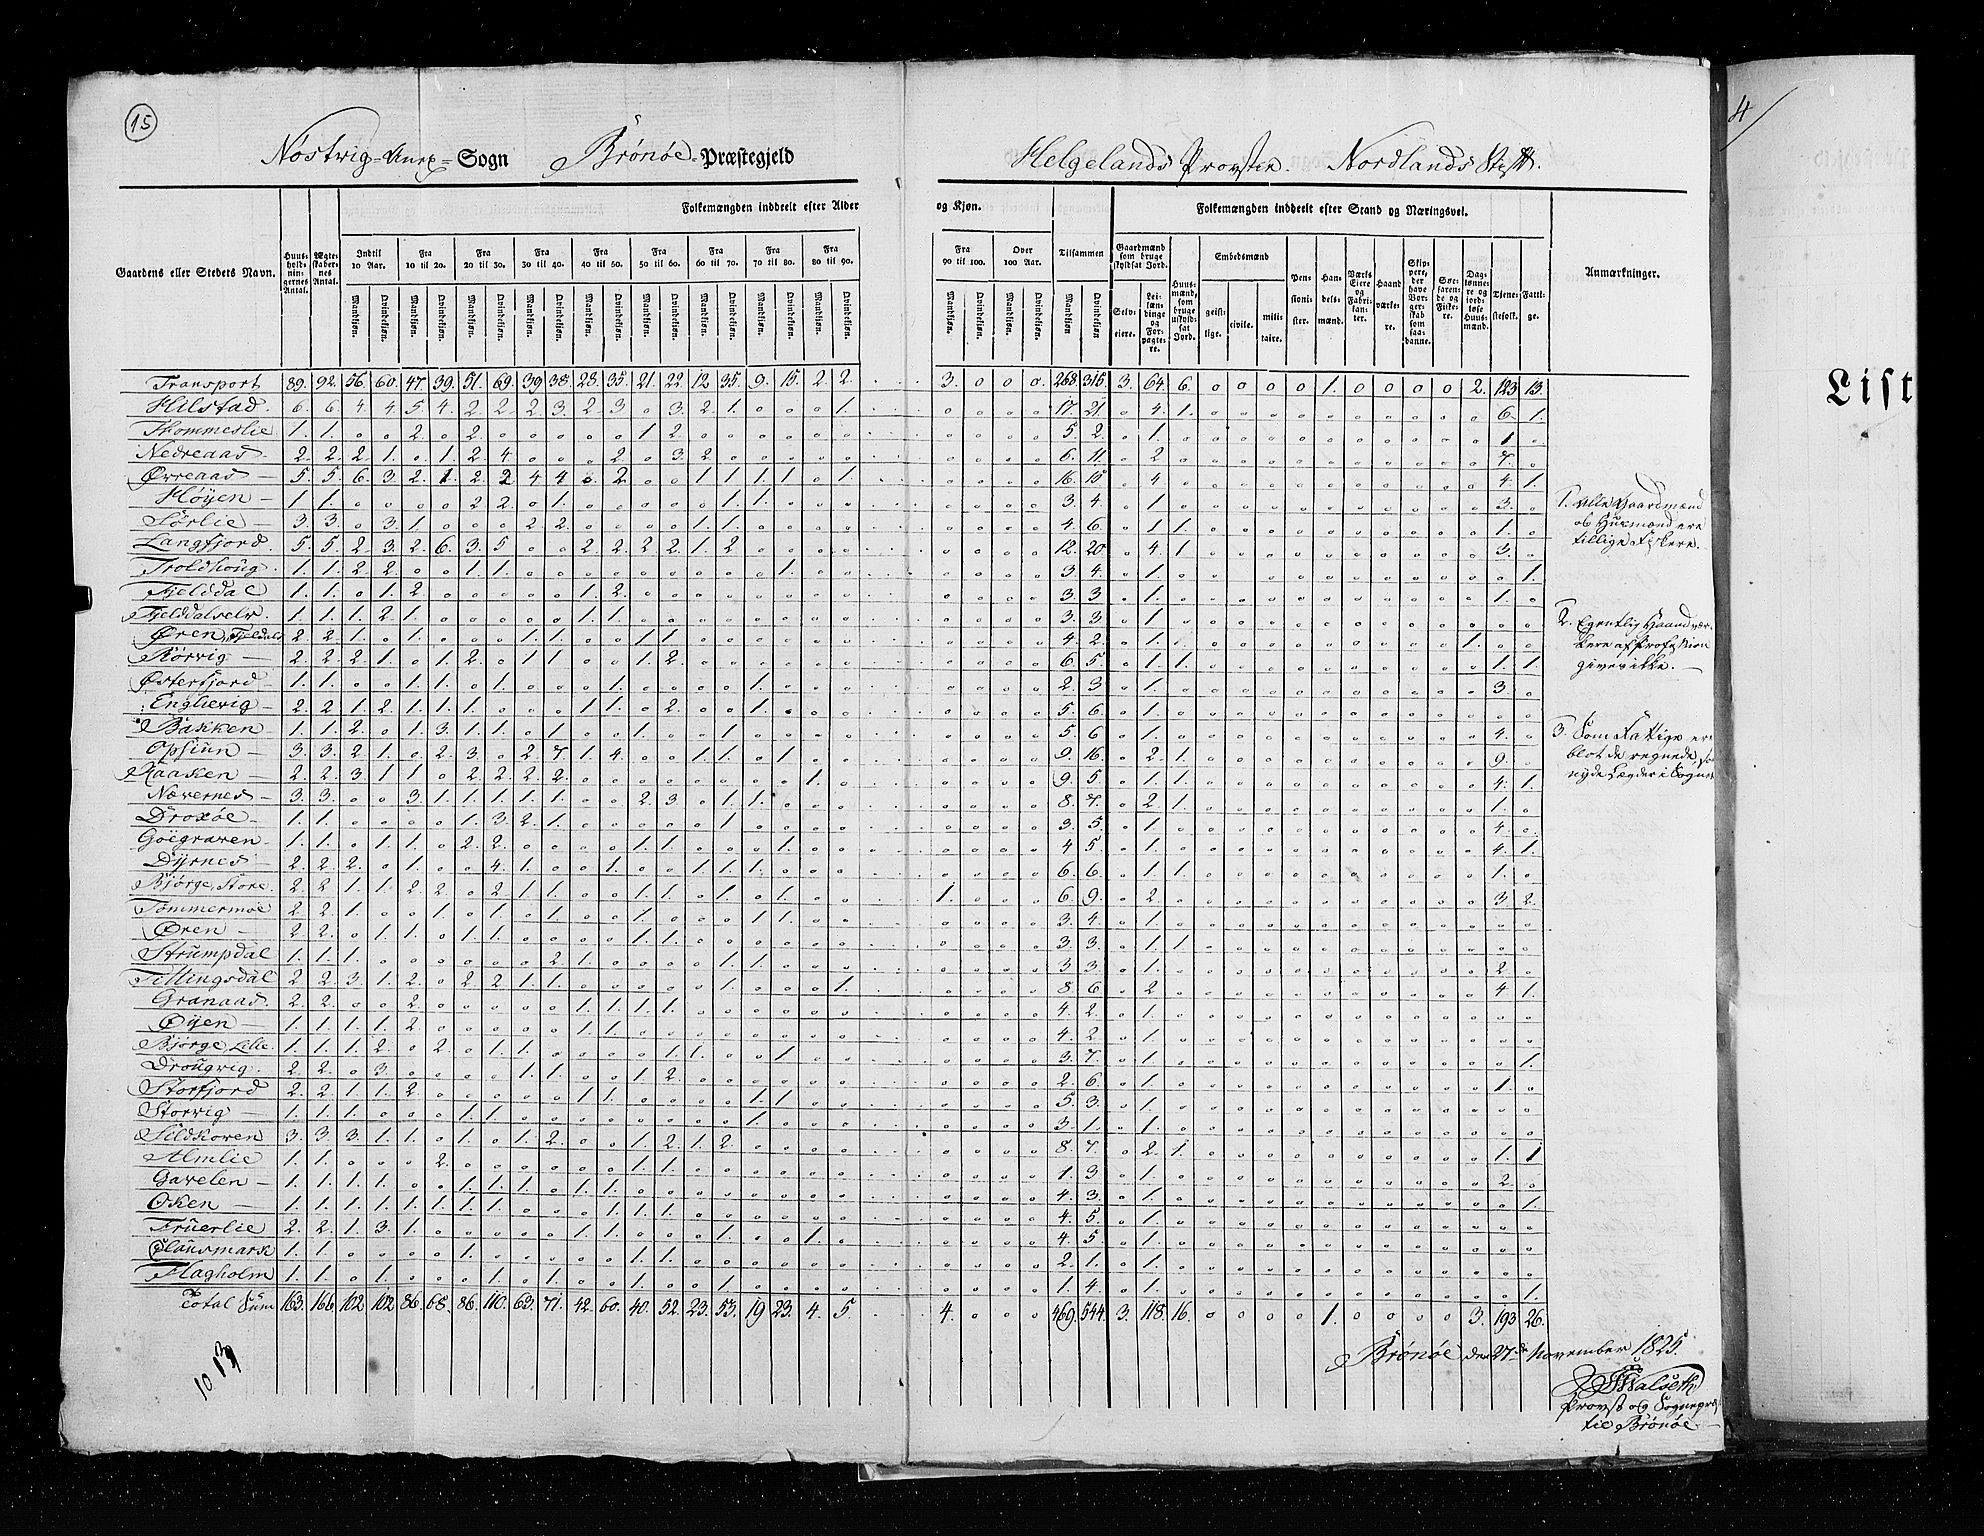 15
Nøstvig Anex-Sogn Brønøe-Præstegjeld Helgelands Provstie. Nordlands Stift.
Folkemængden inddeelt efter Alder og Kjøn. Folkemængden inddeelt efter Stand og Næringsvei.
Gaardens eller Stedets Navn. Huusholdningernes Antal. Ægteskabernes Antal. Indtil 10 Aar. Fra 10 til 20. Fra 20 til 30. Fra 30 til 40. Fra 40 til 50. Fra 50 til 60. Fra 60 til 70. Fra 70 til 80. Fra 80 til 90. Fra 90 til 100. Over 100 Aar. Tilsammen
Mandkjøn. Qvindekjøn.
Gaardmænd som bruge skyldsat Jord. Selveiere. Leilændinge og Forpagtere. Huusmænd, som bruge uskyldsat Jord. Embedsmænd geistlige. civile. militaire. Pensionister. Handelsmænd. Værks Eiere og Fabrikanter. Haandværkere. Skippere, der have Borgerskab som saadanne. Søefarende og Fiskere. Daglønnere og jordløse Huusmænd. Tjenestefolk. Fattige. Anmærkninger.
Transport 89. 92. 56. 60. 47. 39. 51. 69. 39 38. 28. 35. 21. 22. 12 35. 9. 15. 2. 2. 3. o o o. 268. 315. 3. 64. 6. o o o o 1. o o o o 2. 123 13.
Hilstad. 6. 6. 4. 4. 5. 4. 2. 2. 2. 3. 2. 3 o 3. 2. 1. o o o 1. 17. 21. o 4. 1. 6. 1.
Thommeslie 1. 1. o o 2. o 2. o o o o o 1 2. 5. 2. o 1. 1
Nedreaas 2. 2. 2. 1. o 1. 2. 4. o o o 2. o 3. 2. 6. 11. o 2 7.
Øvreaas 5. 5. 6. 3. 2. 1. 2. 2 4 4. o 2. o o 1. 1. 1. 1. o 1. 16. 15 o 4. 4. 1.
Høyen 1. 1. o o o o 2. 2. o 1. o o o o o 1. 1. 3. 4. o 1. 3.
Sørlie 3. 3. o 3. 1. o o o 2 2. o o o o 1. 1. 4. 6. o 1. 1. 1.
Langfjord. 5. 5. 2. 3. 2. 6. 3. 5. o o 2. 2. 2. 2. 1. 2 12. 20 o 4. 1. 3.
Troldhoug. 1. 1. 2. 2. o o 1. 1. o o o o o o o o o 1. 3 4. o 1. 1.
Fjelddal 1. 1. o 1. 2. o o o o o 1. 2. 3. 3 o 1. 1.
Fjelddalselv. 1. 1. 1. 2. 1. o o o o o 1. 1. 3. 3. o 1
Øren, Fjeldals 2. 2. 1. o 1. o o o 1. 1. o o 1. 1. 4. 2. o 1. 1.
Rørvig 2. 2. 2. 1. o 1. 2. o 1 1. o o 1. 2. 6. 5. o 1. 1. 1. 1
Østerfjord 1. 1. o o 1. 1. o 1. o o o o 1. o o o 1. 2. 3 o 1. 3.
Englievig 2. 2 1. 2. 1. 1. 1. o o o 1. 1. o 2. o o 1. 5. 6. o 1.
Bakken 1. 1. 2. o 1. 3. 1. 1. o 1. o o 1. o o 1. 5. 6 o 1. 4.
Opsiun 3. 3. 2. 1. o 2. 3. o 2. 7. 1. 4. o o 1. 1. o 1. 9. 16. o 2. 1. 9.
Aaaken 2. 2. 3. 1. 1. o 2. 2. 2. 2. o o o o o o o o 1. 9. 5. o 1. 1. 4. 1.
Nævernes 3. 3. o o 3. 1. 1. 1. 1. 1. o o 2. 3. o 1. 1. 8. 7. o 2. 1. 1.
Droxøe 1. 1. o o o o 1. 3. 2. 1. o o o o o 1. 3. 5. o 1. 4.
Goegraven 1. 1. o 1. 1. o 2. 2. o o o o 1. 1. o o o 1. 4 5. o 1. 4. 1.
Dyrnes 2. 2. 2. o 1. o o 4. 1. o o 1. o o 1. 1. 1. 6. 6. o 1. 1. 1.
Bjørge, Store. 2. 2 1. 1. 2. 2. o 2. 1. 1. o o 1. 1. o 1. o 1. o o 1. 6. 9. o 2. 3. 2.
Tømmermoe 2. 2 1. o o 1. o 1. o 1. o o 1. o o o 1. 1. 3. 4. o 1.
Øren 2. 2. o 1. 1. o 1. 1. o o o o 1. 1. 3. 3. o 1. 1
Strumpdal 1. 1. 1. o o o o o o 2. 1. o o o o 1. 1. 3 3. o 1. 2.
Tettingsdal 2. 2. 3. 1. 2. o 2. 2. 1. 1. o o o o o 1. o o o 1. 8 6. o 2. 4. 1.
Granaas. 2. 2. o o 2. o o o o o 1. 1. 1. 1. 4. 2. o 1.
Øyen 1. 1. 1. 1. 2. o o o o o 1. 1. 4. 2. o 1.
Bjørge, Lille. 1. 1. 1. 2. o 2. o 1. 1. o o o o 1. 1. o o 1. 3. 7. o 1. 1.
Drougvig. 2. 2. o 3. o o o o 1. 1. o o 1. 2. 2. 6. o 1. 1.
Storfjord 2. 2. 1. 1. 2. o o o o o 1. 1. o o o o 1. 1. 5. 3. o 1.
Storvig 1. 1. 1. o o o 1. 1. o o o o o o o o 1. 3. 1. o 1.
Sildkoven 3. 3. 3. 1. 1. o 1. o 1. 2. o o 1. 2. 1. 2. 8. 7. o 2. 1. 1. 1
Almlie 1. 1. o o o 2. o o o o o o 1. 1. 1. 3. o 1. 2.
Gavelen 1. 1. 1. 1. o o 1. 1. 1. o 1. 1. 4. 3. o 1. 1.
Oken 1. 1. 1. 1. 1. 1. 1. 1. o o o 1. 1. 1. 4. 5. o 1.
Fruerlie 2. 2. 1. 3. 1. o o o o o 1. 1. o o o 1. o o 1. 4. 5. o 1.
Clausmark 1. 1. o o o o 1. o o o o o 1. 1. 2. 1. o 1.
Flagholm 1. 1. o 1. o o o 1. o 1. o o 1. o o 1. 1. 4. o 1. 1.
Total Sum 163. 166. 102. 102. 86. 68. 86. 110. 63. 71. 42. 60. 40. 52. 23. 53. 19 23. 4. 5. 4. o o o 469. 544. 3. 118. 16. o o o o 1. o o o o 3. 193 26.
1. Alle Gaardmænd
og Husmænd ere
tillige Fiskere.
2. Egentlig Haandvær-
kere af Profession
gives ikke.
3. Som Fattige er
blot de regnede, som
nyde Lægder i Sognet
1013
Brønøe den 27de November 1825.
Walseth
Provst og Sognepræst
til Brønøe
4
List